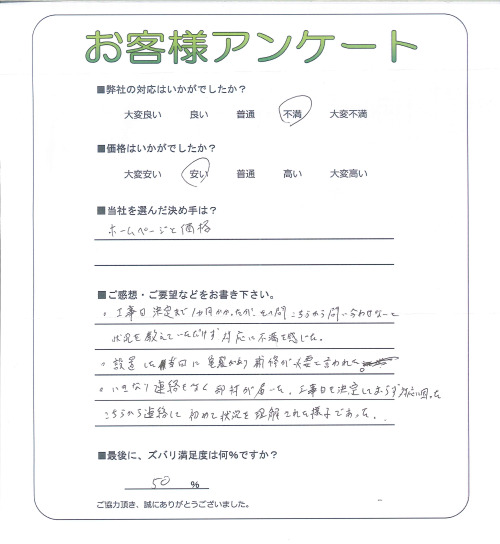 お客様アンケート
■弊社の対応はいかがでしたか？
大変良い 良い 普通 不満 大変不満
■価格はいかがでしたか？
大変安い 安い 普通 高い 大変高い
■当社を選んだ決め手は？
ホームページと価格
■ご感想・ご要望などをお書き下さい。
。工事日決定まで1ヵ月かかったが、その間こちらから問い合わせないと
状況を教えていただけず対応に不満を感じた。
。設置した当日に 補修が必要と言われた。
。いきなり連絡もなく部材が届いた。工事日も決定しておらず 困った
こちらから連絡して初めて状況を理解された様子であった。
■最後に、ズバリ満足度は何％ですか？
50 %
ご協力頂き、誠にありがとうございました。